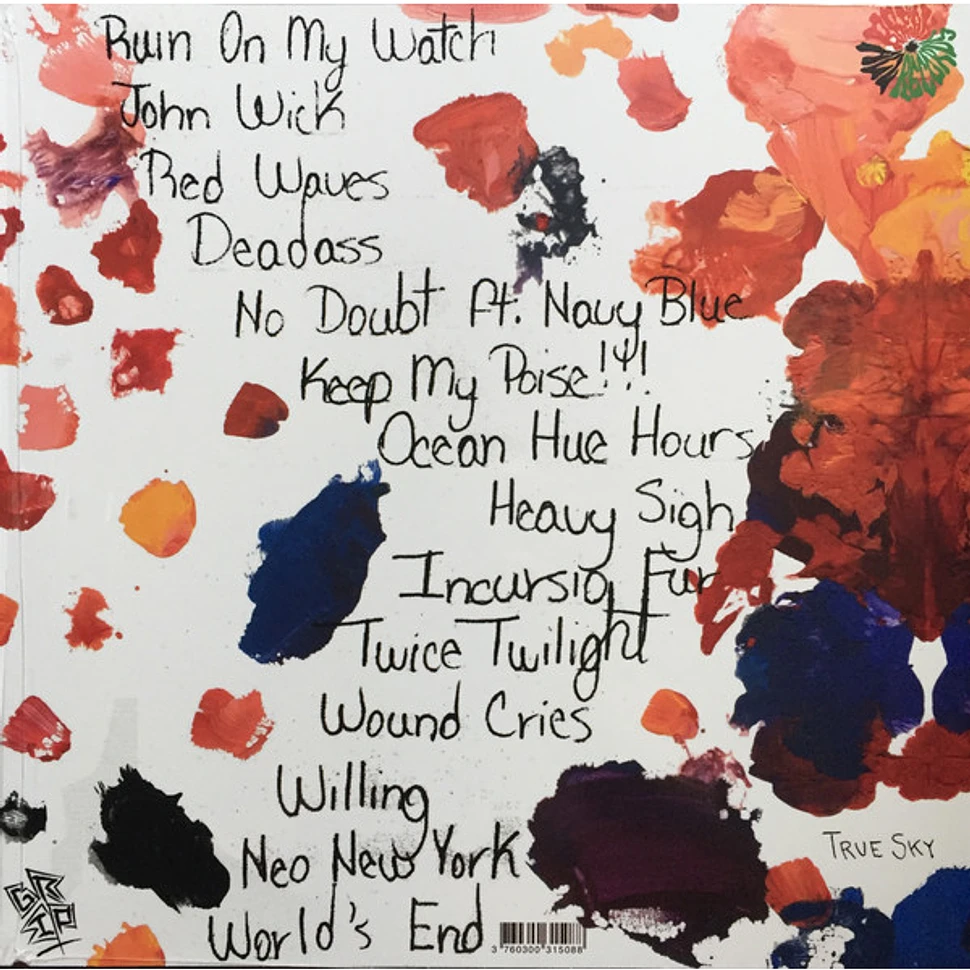 Ruin On My Watch
John Wick
Red Waves
Deadass
No Doubt ft. Navy Blue
Keep My Poise!!!
Ocean Hue Hours
Heavy Sigh
Incursio, Fur
Twice Twilight
Wound Cries
Willing
Neo New York
World's End
TRUE SKY
GRIP
3 760300 315088